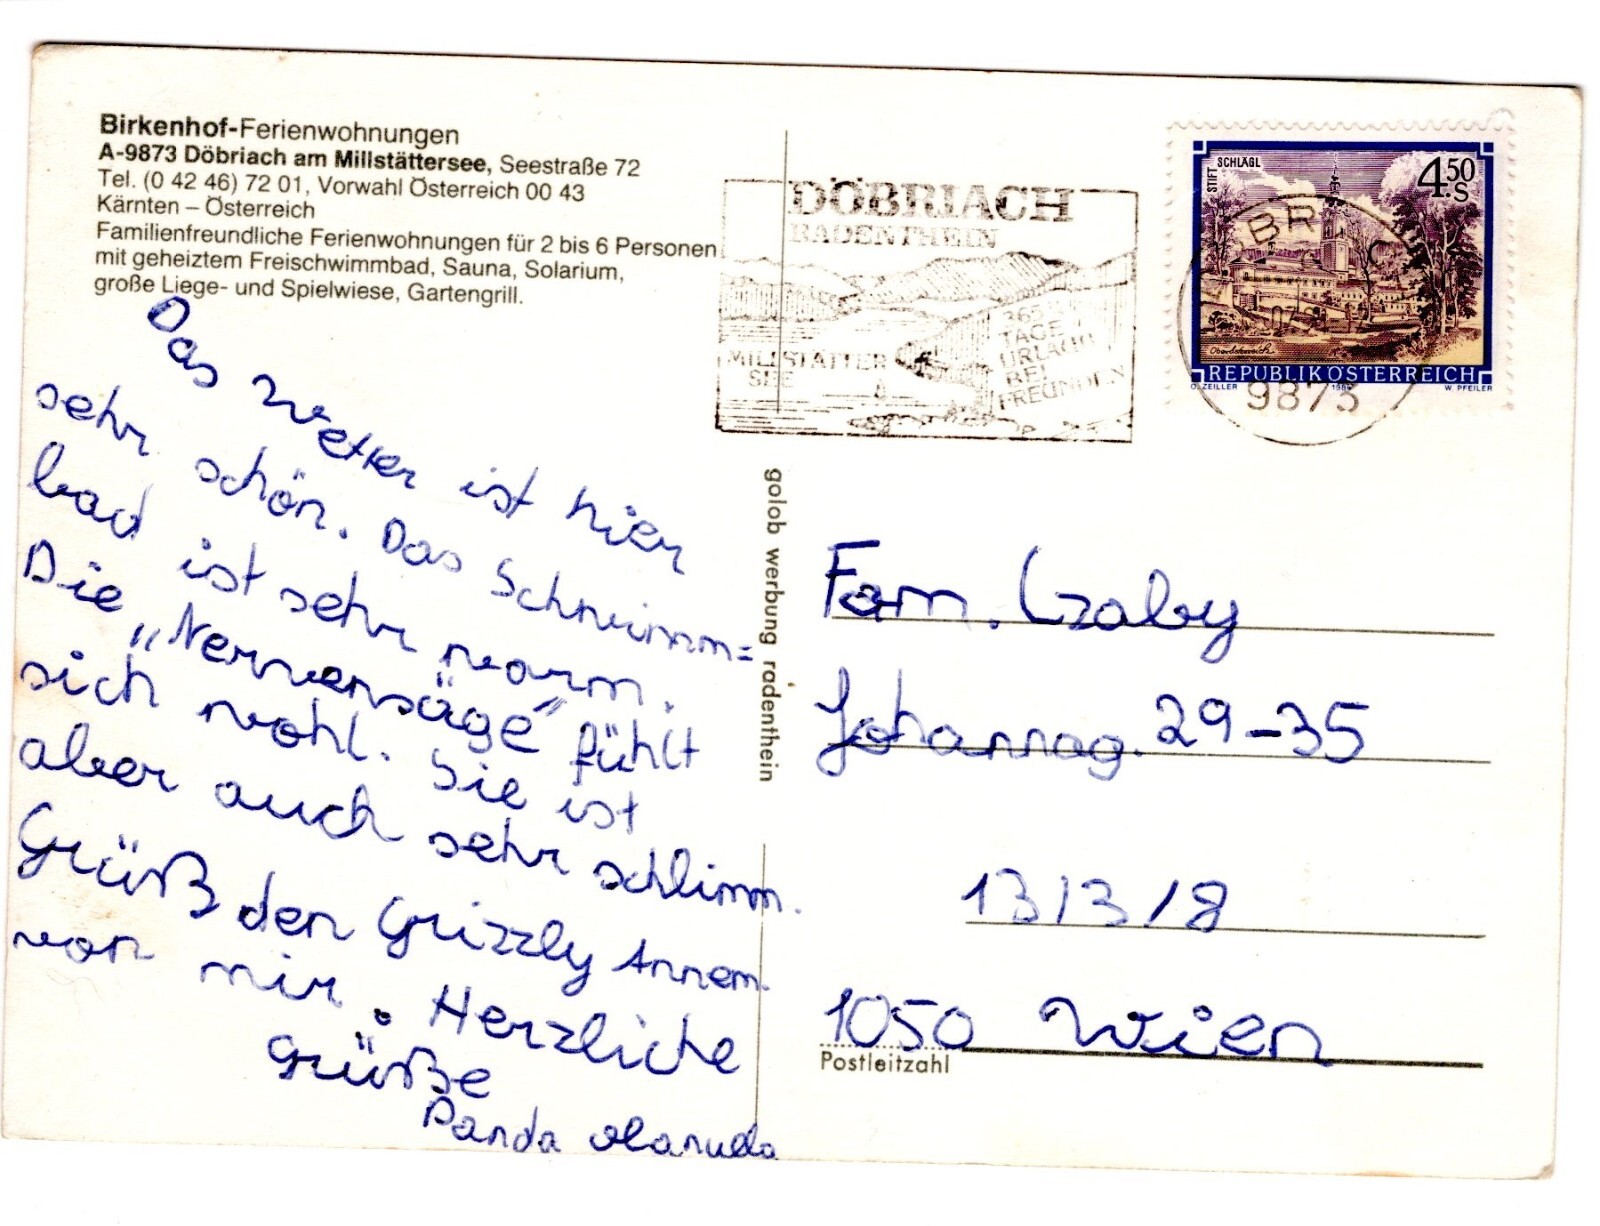 Birkenhof-Ferienwohnungen
A-9873 Döbriach am Millstättersee, Seestraße 72
Tel. (0 42 46) 72 01, Vorwahl Österreich 00 43
Kärnten – Österreich
Familienfreundliche Ferienwohnungen für 2 bis 6 Personen
mit geheiztem Freischwimmbad, Sauna, Solarium,
große Liege- und Spielwiese, Gartengrill.
Das Wetter ist hier
sehr schön. Das Schwimm=
bad ist sehr warm.
Die „Nervensäge" fühlt
sich wohl. Sie ist
aber auch sehr schlimm.
Grüß den Grizzly Annem.
von mir. Herzliche
Grüße
Panda
golob werbung radenthein
DÖBRIACH
RADENTHEIN
MILLSTÄTTER
SEE
365
TAGE
URLAUB
BEI
FREUNDEN
STIFT SCHLÄGL
4.50 S
Oberösterreich
REPUBLIK ÖSTERREICH
O. ZEILLER
W. PFEILER
9873
Fam. Czaby
Johannag. 29-35
13/3/8
1050 Wien
Postleitzahl